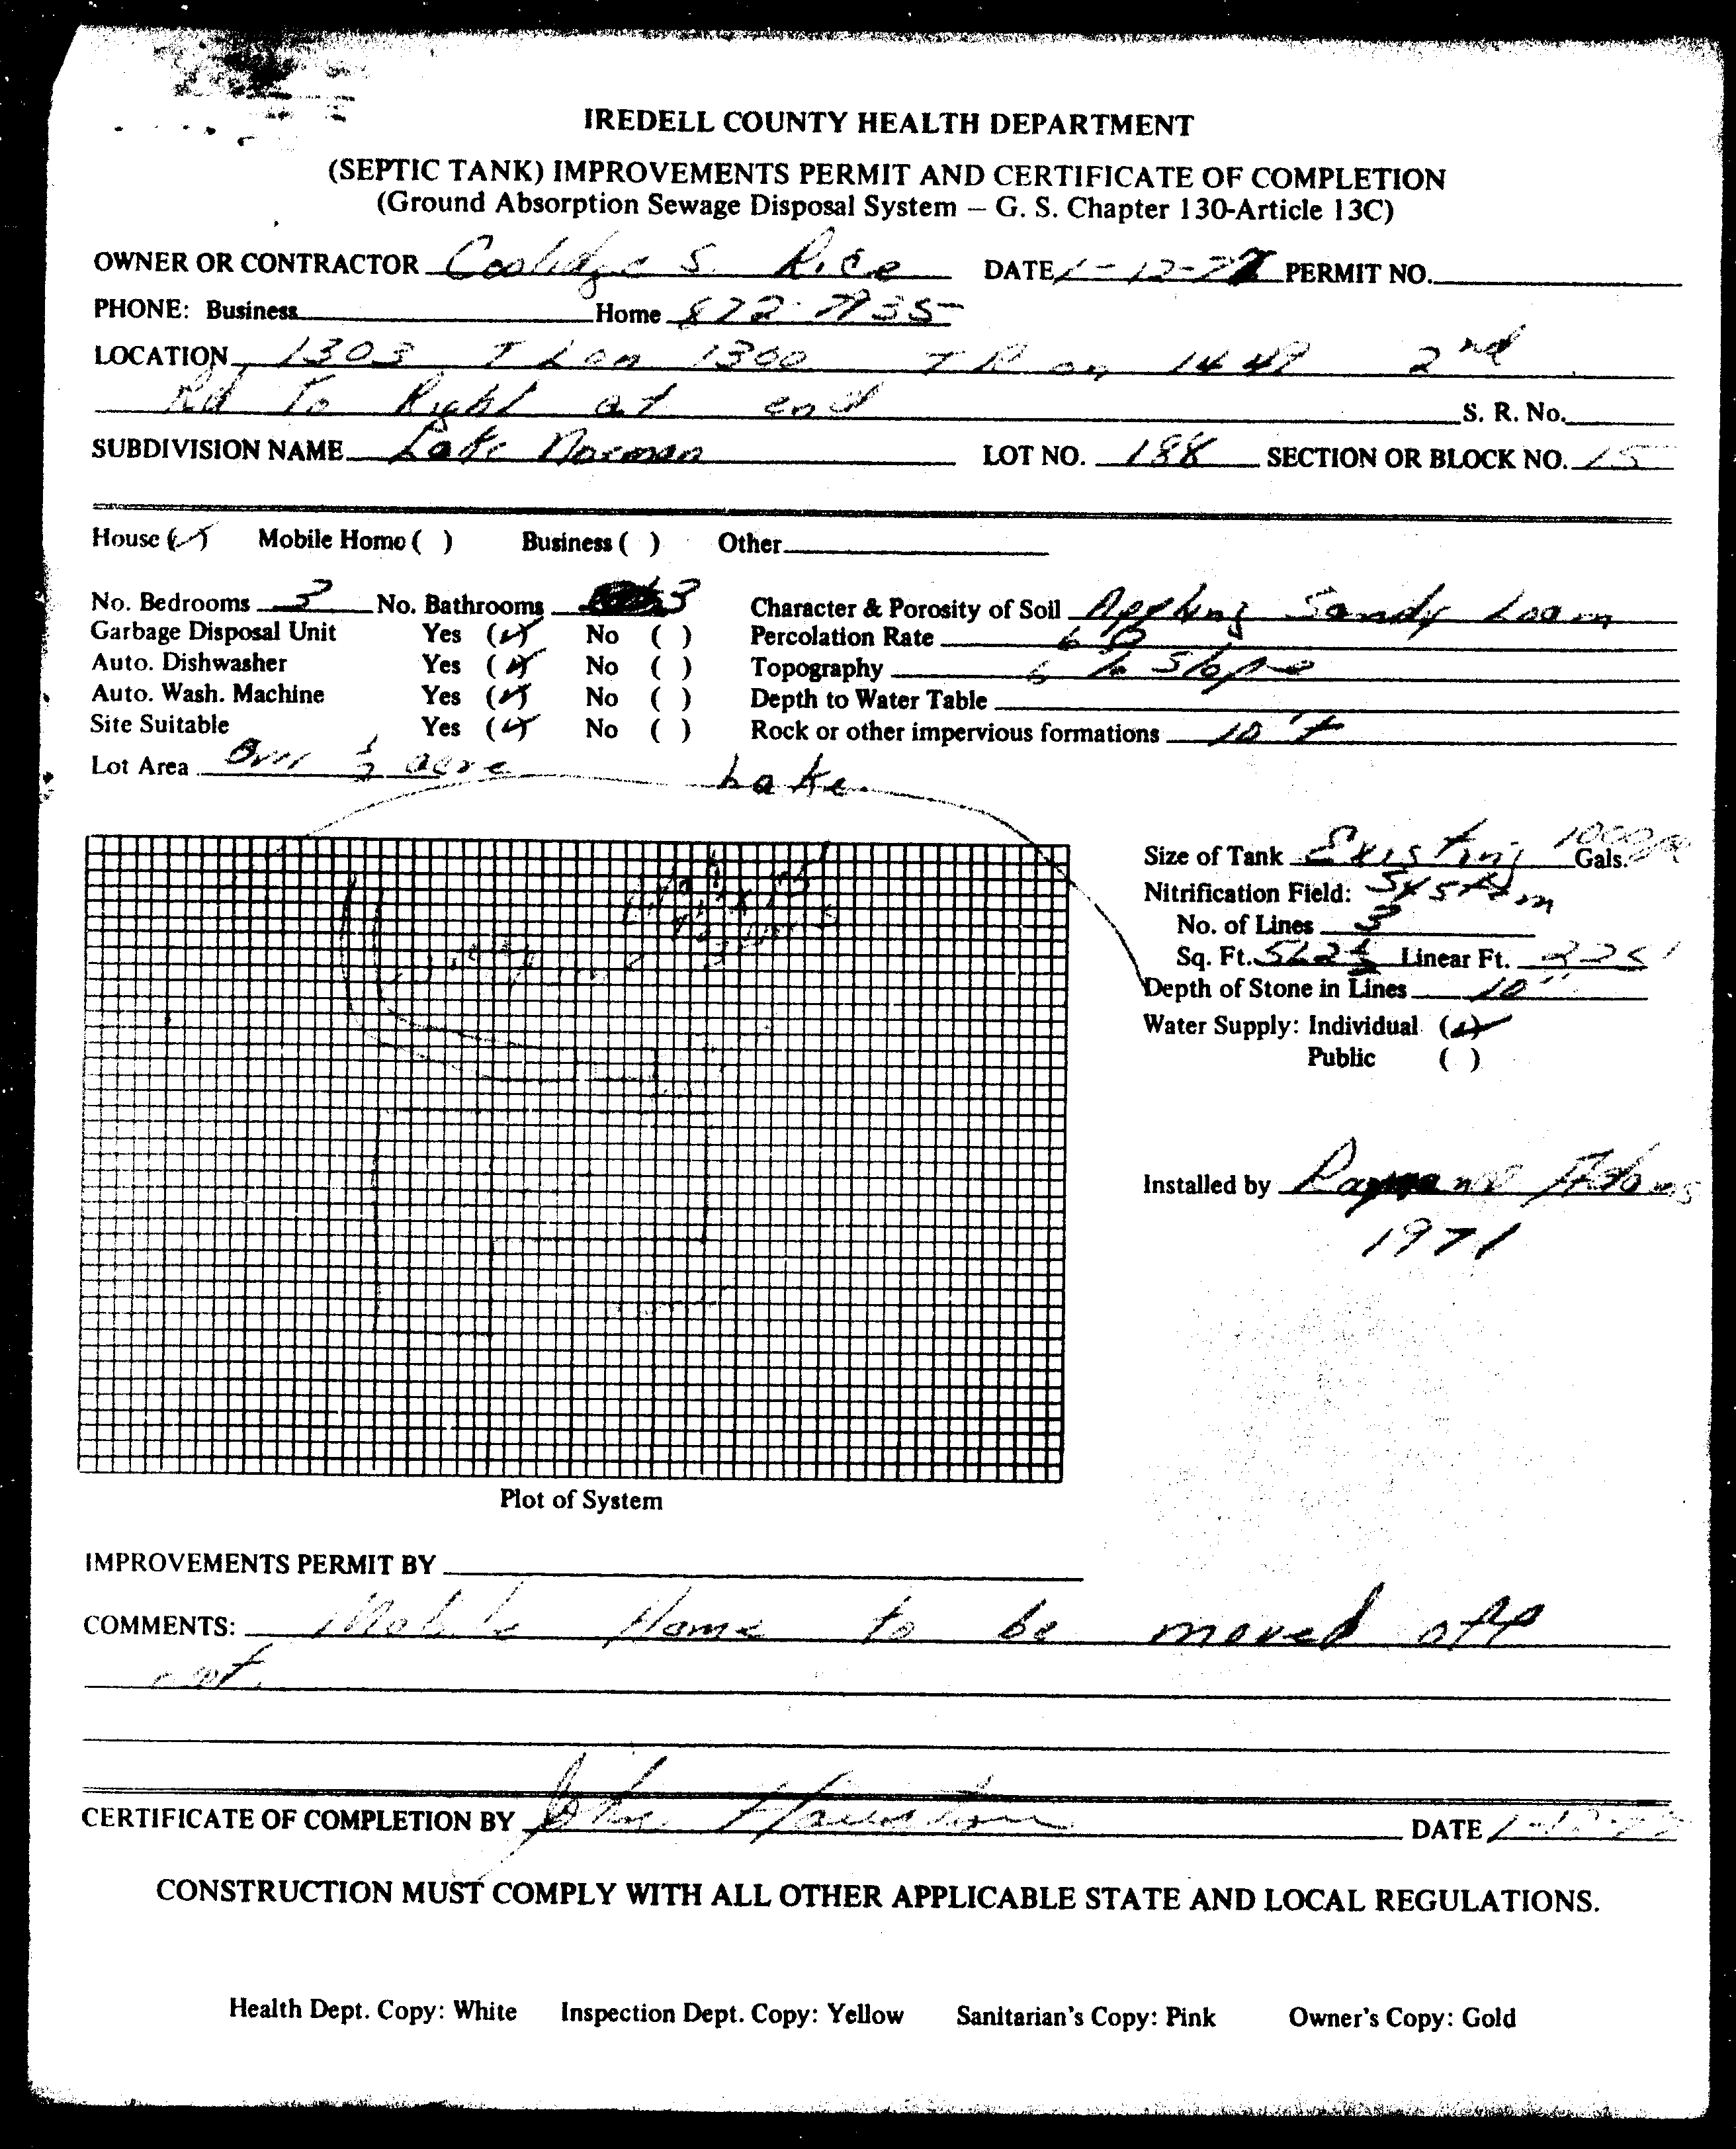 IREDELL COUNTY HEALTH DEPARTMENT
(SEPTIC TANK) IMPROVEMENTS PERMIT AND CERTIFICATE OF COMPLETION
(Ground Absorption Sewage Disposal System – G. S. Chapter 130-Article 13C)
OWNER OR CONTRACTOR Coolidge S. Rice DATE 1-12-77 PERMIT NO.
PHONE: Business Home 872-7935
LOCATION 1303 T L on 1300 T R on 1449 2nd
Rd To Right at end S. R. No.
SUBDIVISION NAME Lake Norman LOT NO. 188 SECTION OR BLOCK NO. 15
House (✓) Mobile Home ( ) Business ( ) Other
No. Bedrooms 3 No. Bathrooms 3 Character & Porosity of Soil Appling Sandy Loam
Garbage Disposal Unit Yes (✓) No ( ) Percolation Rate 60
Auto. Dishwasher Yes (✓) No ( ) Topography 6 % Slope
Auto. Wash. Machine Yes (✓) No ( ) Depth to Water Table
Site Suitable Yes (✓) No ( ) Rock or other impervious formations 10'+
Lot Area Over 1/2 acre
Lake
Size of Tank Existing 1000 Gals.
Nitrification Field: System
No. of Lines 3
Sq. Ft. Linear Ft. 225'
Depth of Stone in Lines 10"
Water Supply: Individual (✓)
Public ( )
Installed by Raymond Adams
1971
Plot of System
IMPROVEMENTS PERMIT BY
COMMENTS: Mobile Home to be moved off
CERTIFICATE OF COMPLETION BY John Houston DATE 1-12-77
CONSTRUCTION MUST COMPLY WITH ALL OTHER APPLICABLE STATE AND LOCAL REGULATIONS.
Health Dept. Copy: White Inspection Dept. Copy: Yellow Sanitarian's Copy: Pink Owner's Copy: Gold